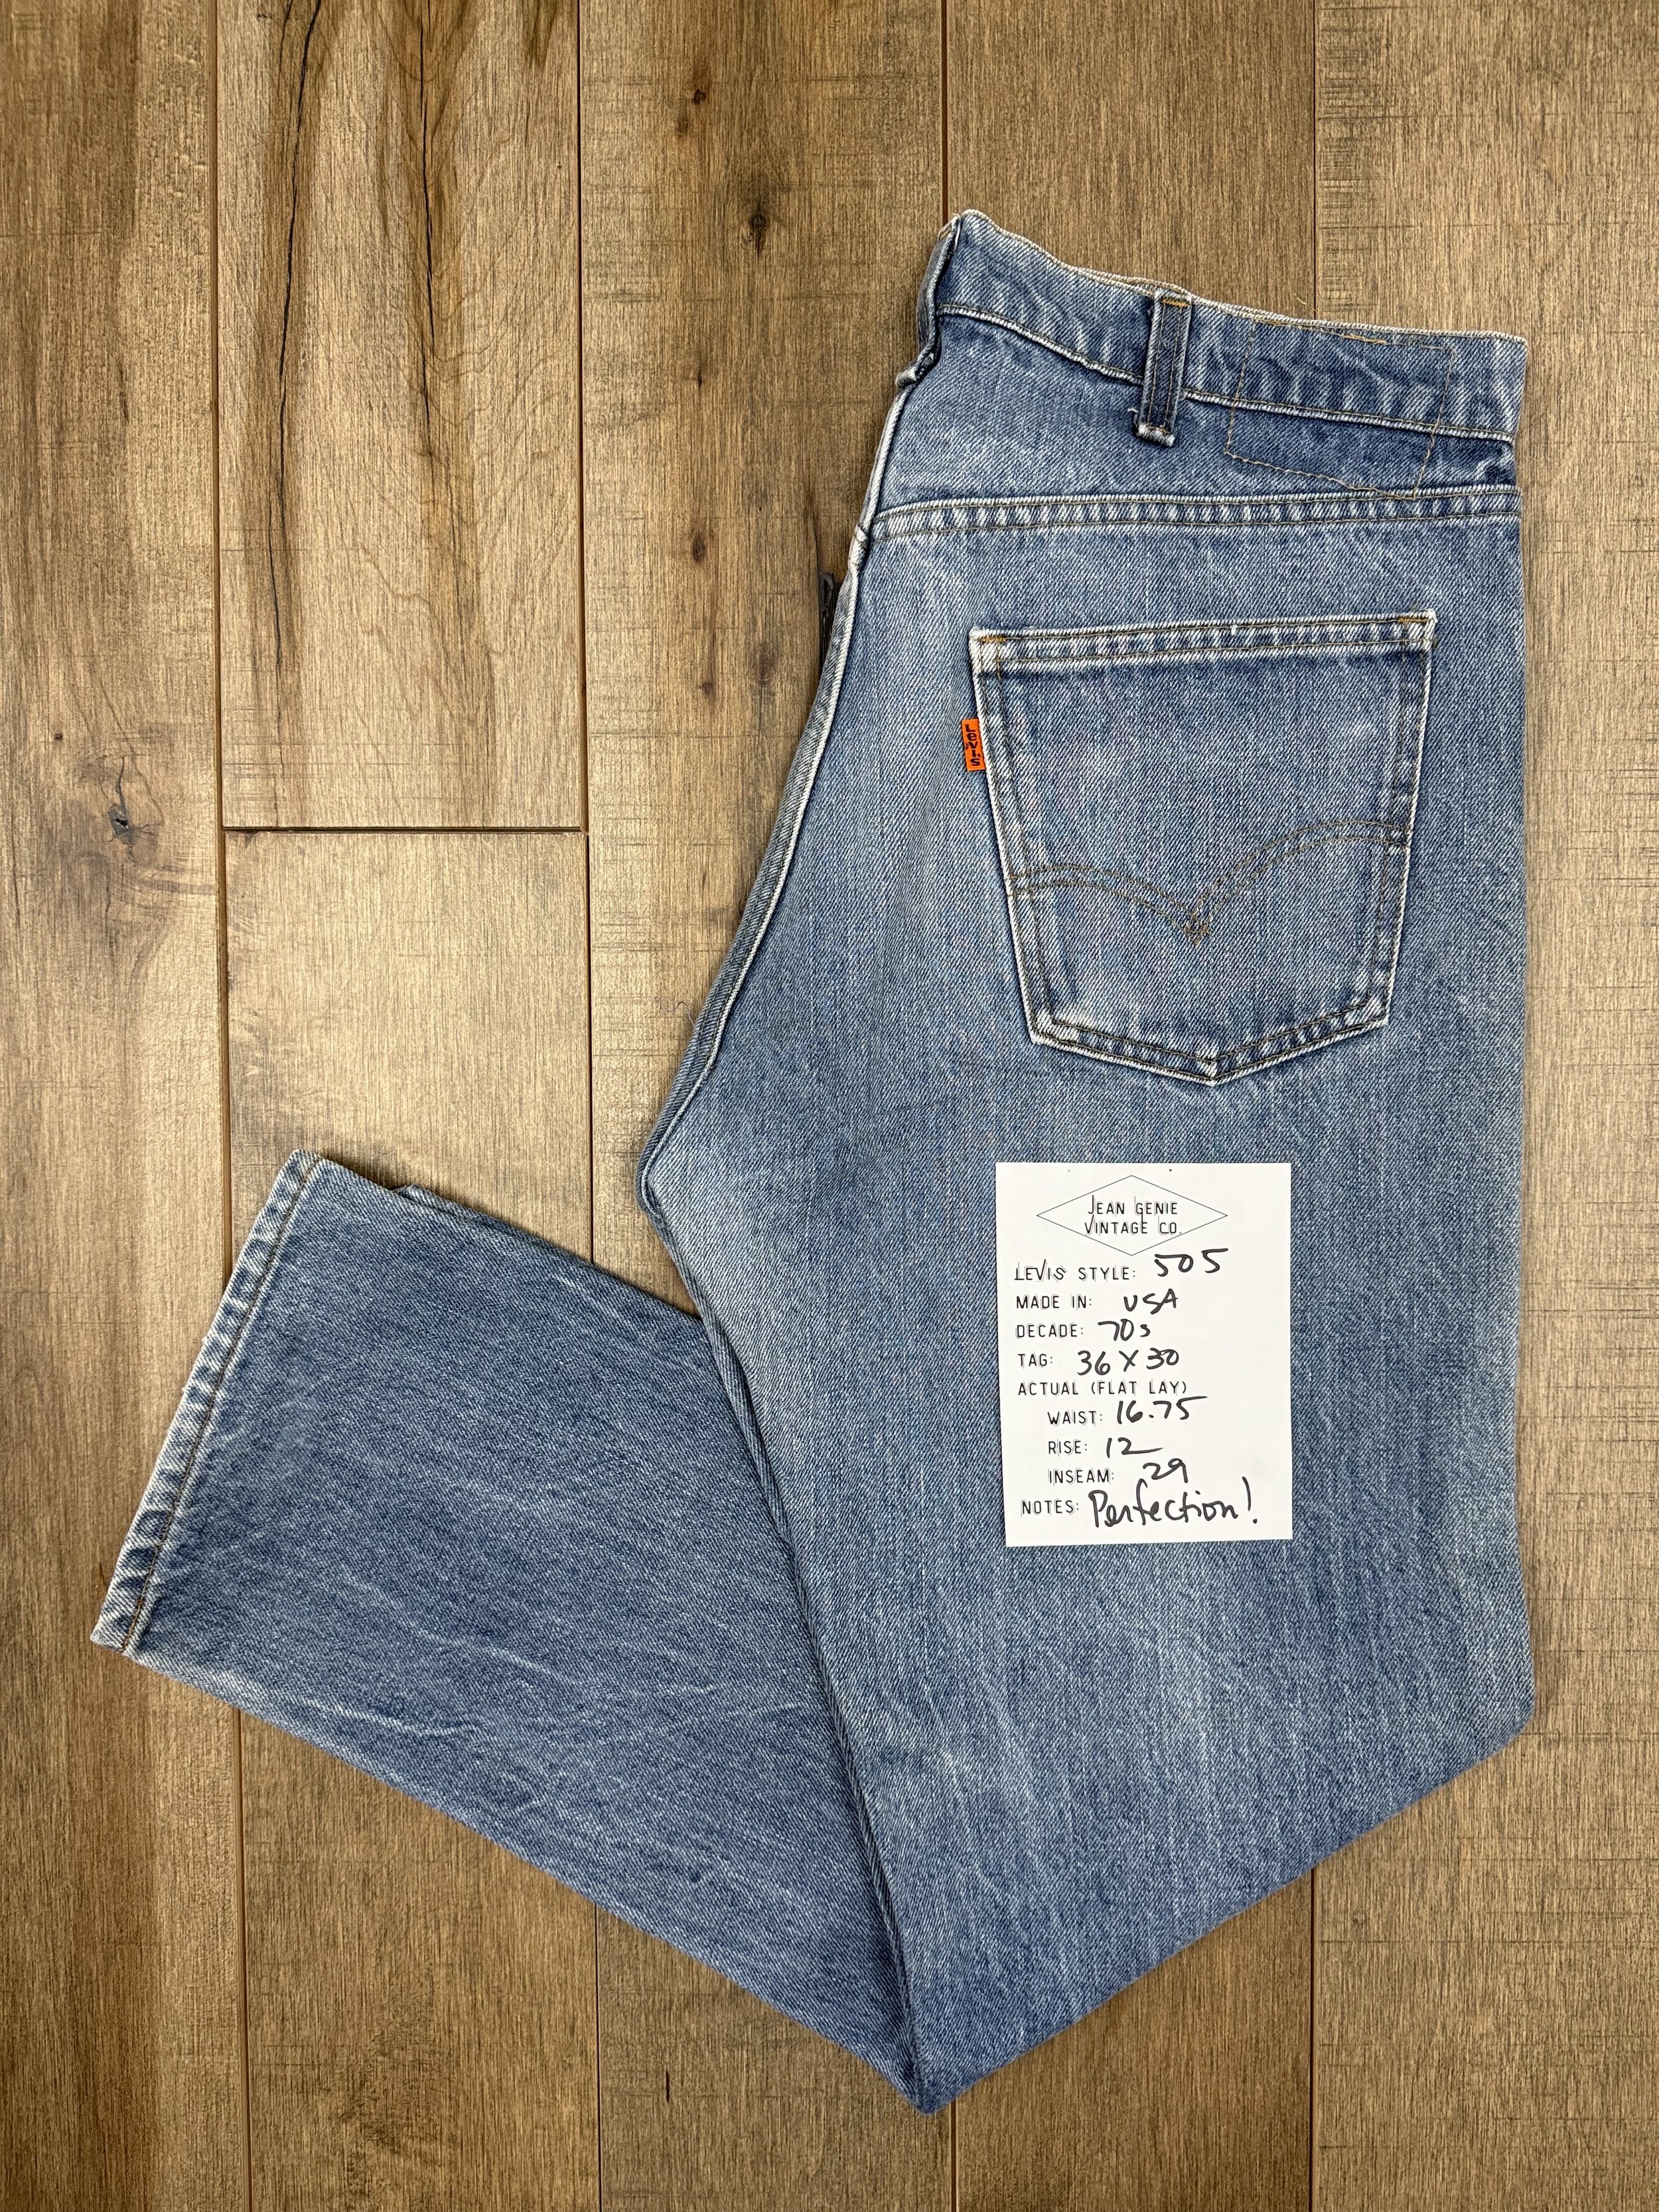 Levi's
JEAN GENIE
VINTAGE CO.
LEVIS STYLE: 505
MADE IN: USA
DECADE: 70s
TAG: 36 X 30
ACTUAL (FLAT LAY)
WAIST: 16.75
RISE: 12
INSEAM: 29
NOTES: Perfection!